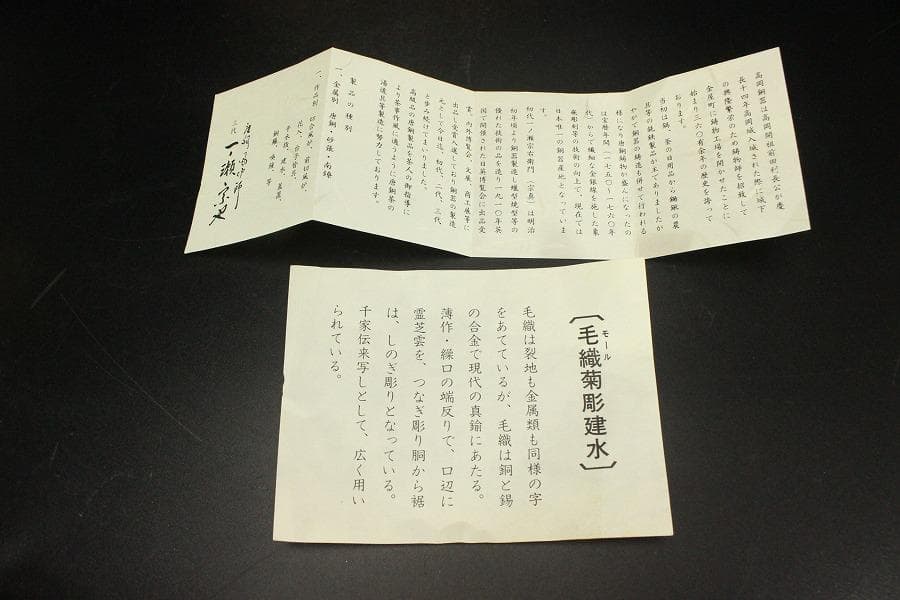 高岡銅器は高岡開祖前田利長公が慶
長十四年高岡城入城された際に城下
の興隆繁栄のため鋳物師を招致して
金屋町に鋳物工場を開かせたことに
始まり三六〇有余年の歴史を誇って
おります。
当初は鍋、釜の日用品から鋤鍬の農
具等の銑鉄製品が主でありましたが
やがて銅器の鋳造も併せて行われる
様になり唐銅鋳物が盛んになったの
は宝暦年間(一七五〇~一七六〇年
代)からで繊細な金銀線を施した象
嵌彫刻等の技術の向上で、現在では
日本唯一の銅器産地となっていま
す。
初代一ノ瀬宗右衛門(宗真)は明治
初年頃より銅器製造し蠟型焼型等の
優れた技術の品を造り一九一〇年英
国で開催された日英博覧会に出品受
賞、内外博覧会、文展、商工展等に
出品し受賞入選しており銅器の製造
元として今日迄、初代、二代、三代、
と歩み続けてまいりました。
高級品の唐銅製品を茶人の御指導に
より茶事作風に適うように唐銅茶の
湯道具等製造に努力しております。
製品の種別
一、金属別 唐銅・砂張・南鐐
一、作品別 切合風炉、前切風炉、
花入、台子皆具、
水次、建水、蓋置、
銅鑼、喚鐘、等
三代 一ノ瀬宗也
〔毛織菊彫建水〕
モール
毛織は裂地も金属類も同様の字
をあてているが、毛織は銅と錫
の合金で現代の真鍮にあたる。
薄作・繰口の端反りで、口辺に
霊芝雲を、つなぎ彫り胴から裾
は、しのぎ彫りとなっている。
千家伝来写しとして、広く用い
られている。